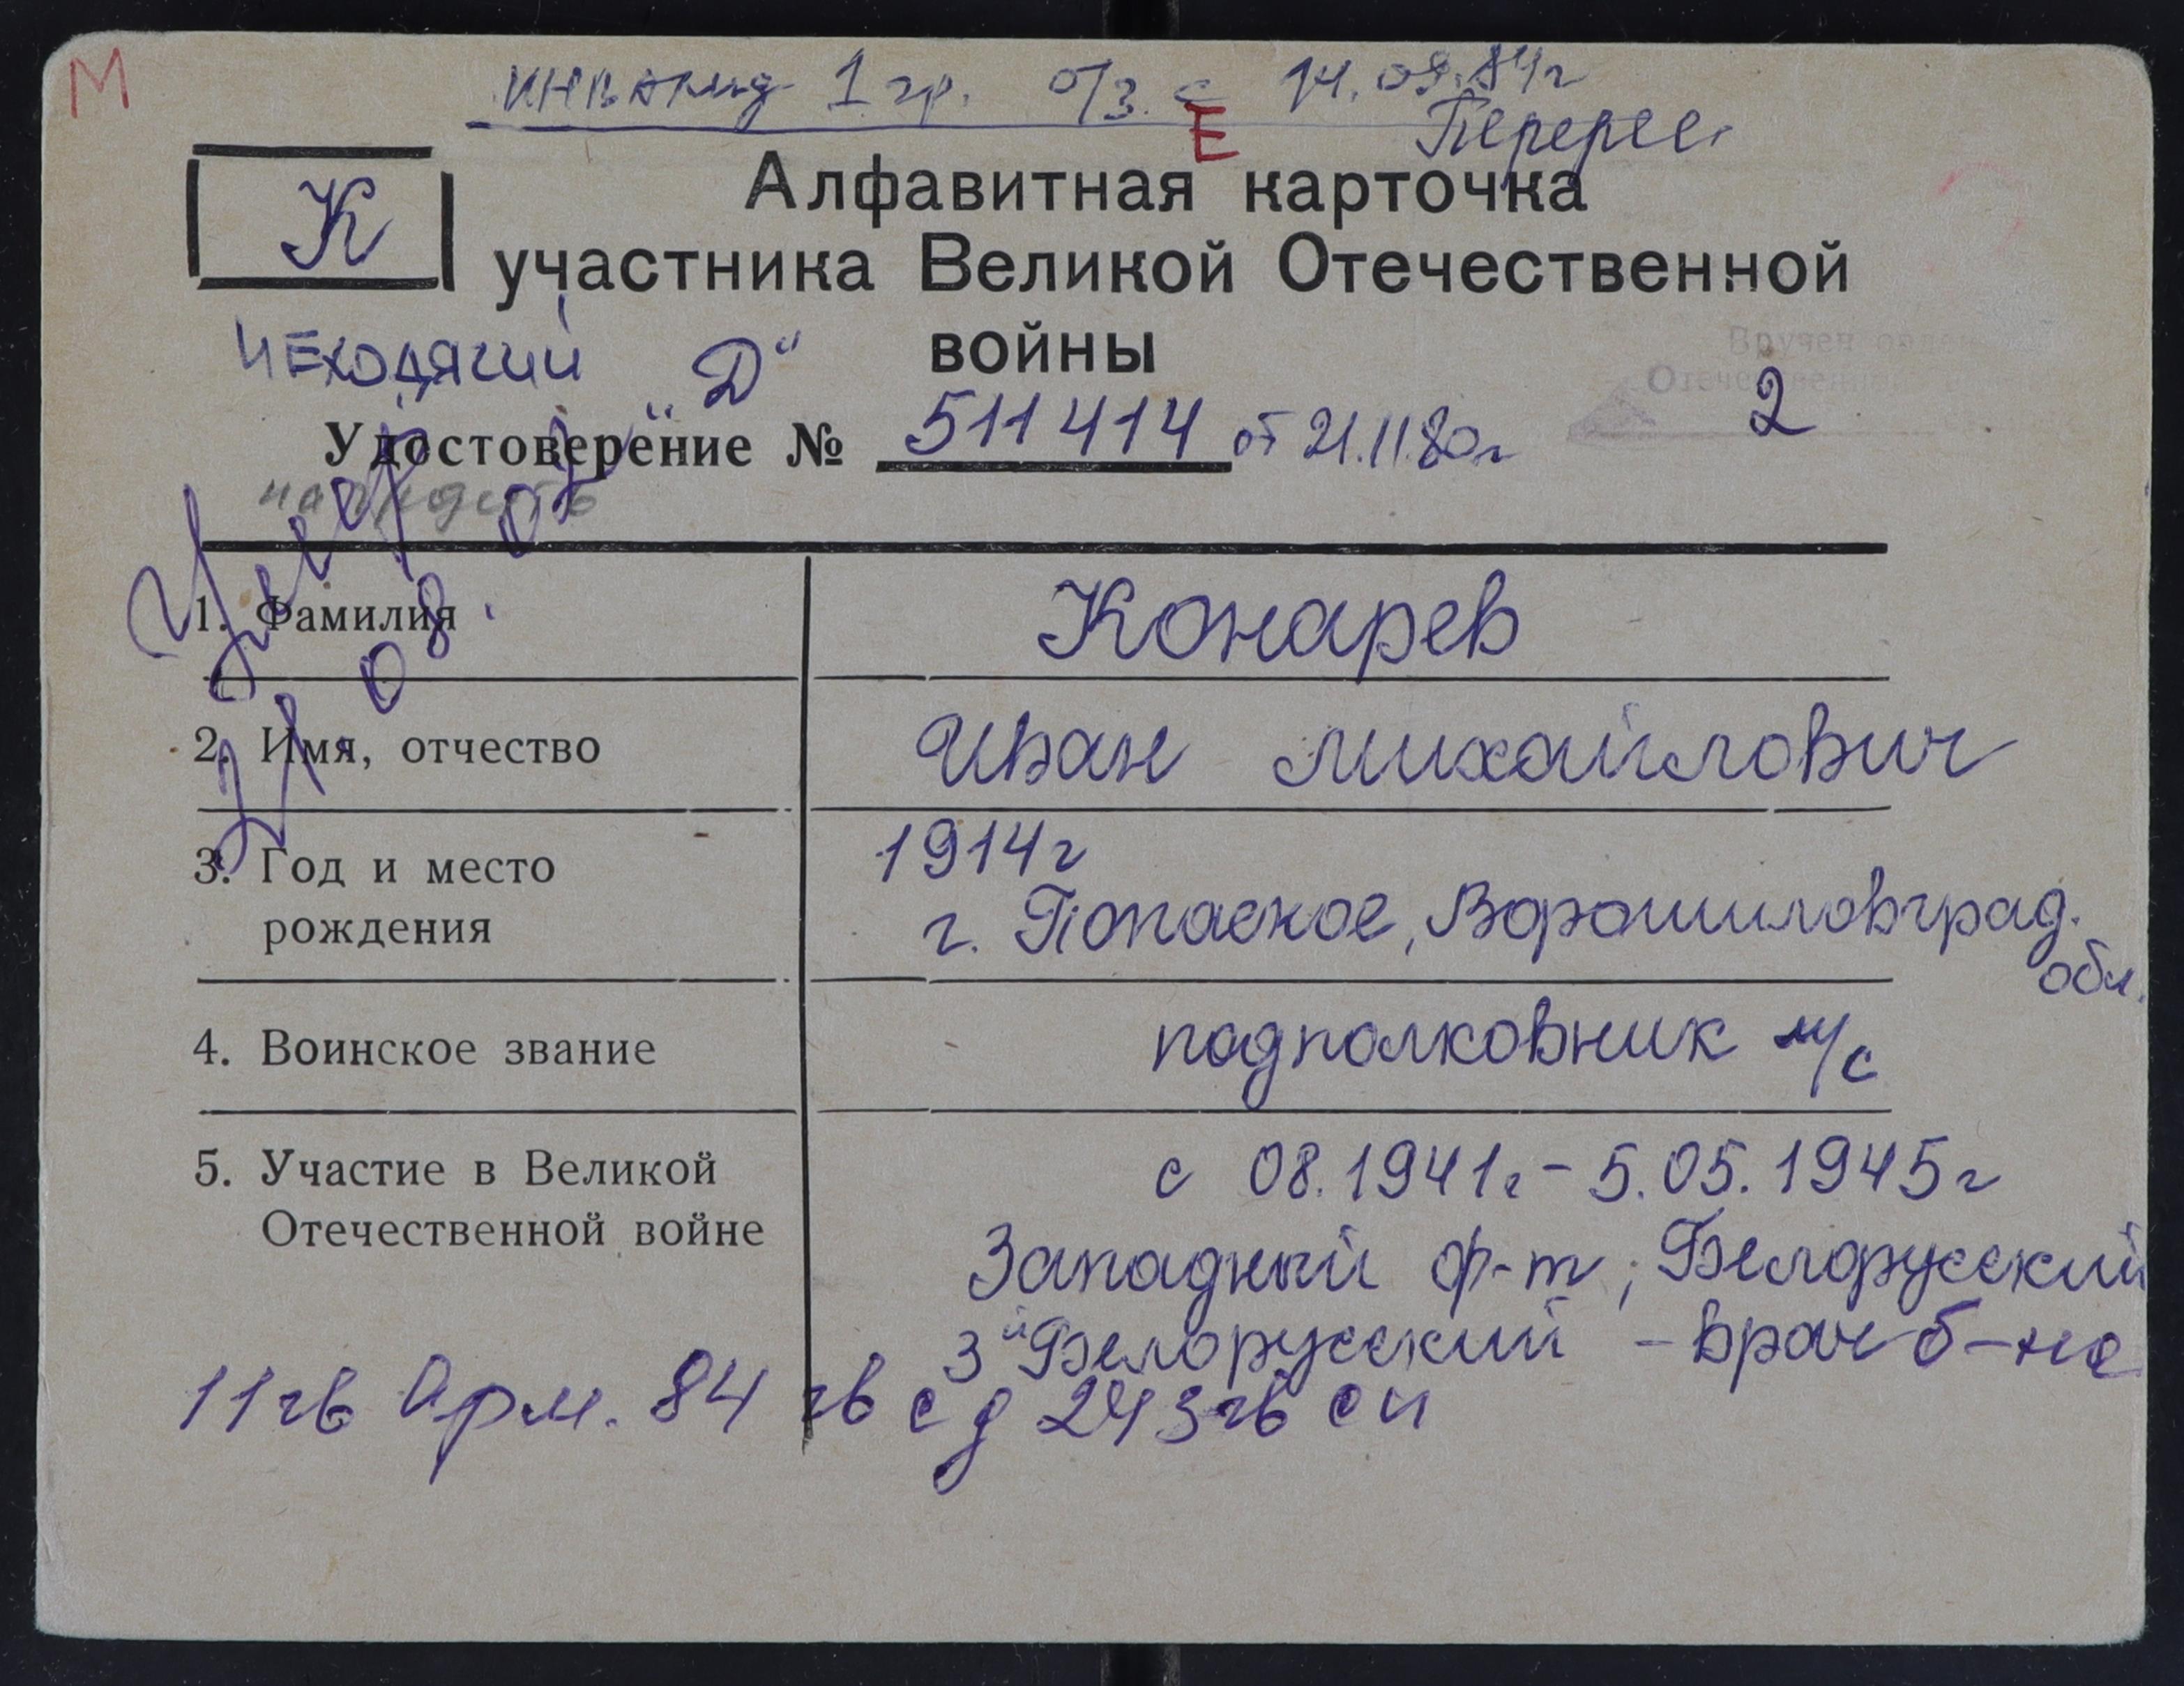 М
инвалид 1 гр. о/з. с 14.09.84г
Е
Перерег.
К
Алфавитная карточка
участника Великой Отечественной
войны
неходячий "Д"
Вручен орден
Отечественной
2
Удостоверение № 511414 от 21.11.80г
Умер
21.08.07
1. Фамилия Конарев
2. Имя, отчество Иван Михайлович
3. Год и место рождения 1914г
г. Попасное, Ворошиловград. обл.
4. Воинское звание подполковник м/с
5. Участие в Великой Отечественной войне с 08.1941г - 5.05.1945г
Западный ф-т, Белорусский
3й Белорусский - врач б-на
11 гв Арм. 84 гв сд 243 гв сп